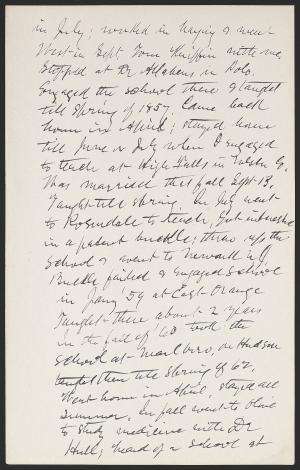 in July; worked in haying & went
West in Sept. Tom Kniffin with me
Stopped at Dr Allabens in Polo.
Engaged the school there & taught
till Spring of 1857. Came back
home in April; stayed home
till June or July when I engaged
to teach at High Falls in Ulster Co.
Was married that fall Sept 13,
Taught till spring. In July went
to Rosendale to teach, Got interested
in a patent buckle; threw up the
School & went to Newark N J
Buckle failed & engaged School
in Jany 59 at East Orange
Taught there about 2 years
in the fall of 60 took the
school at Marlboro, on Hudson
taught then till spring of 62.
Went home in April, stayed all
Summer. In fall went to Olive
to study medicine with Dr
Hull; heard of a School at